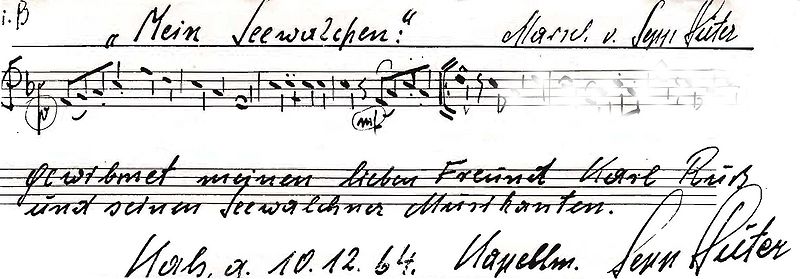 i. B
„Mein Seewalchen." Marsch v. Sepp Hüter
p mf
gewidmet meinen lieben Freund Karl Ruß
und seinen Seewalchner Musikanten.
a. 10.12.64. Kapellm. Sepp Hüter